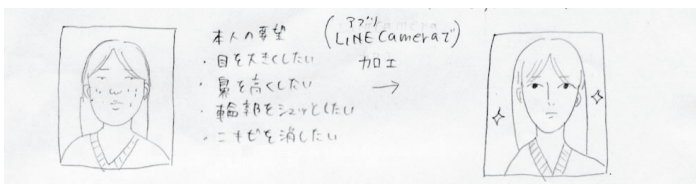 本人の要望
・目を大きくしたい
・鼻を高くしたい
・輪郭をシュッとしたい
・ニキビを消したい
アプリ
(LINE Cameraで)
加工
→